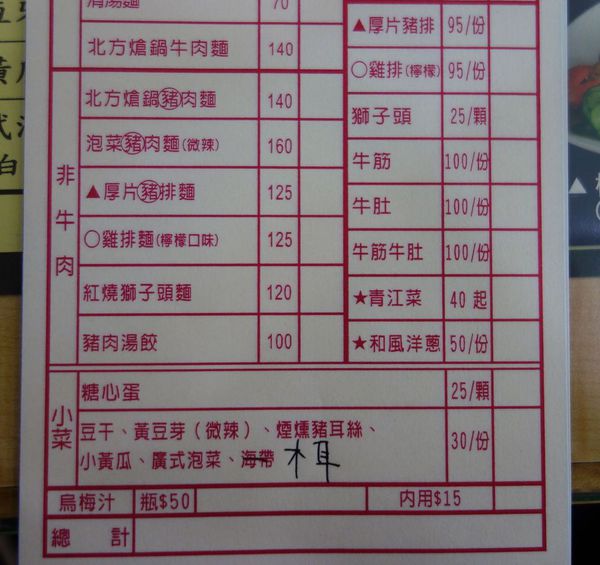 清湯麵 70
北方熗鍋牛肉麵 140
非牛肉
北方熗鍋豬肉麵 140
泡菜豬肉麵(微辣) 160
▲厚片豬排麵 125
○雞排麵(檸檬口味) 125
紅燒獅子頭麵 120
豬肉湯餃 100
▲厚片豬排 95/份
○雞排(檸檬) 95/份
獅子頭 25/顆
牛筋 100/份
牛肚 100/份
牛筋牛肚 100/份
★青江菜 40 起
★和風洋蔥 50/份
小菜
糖心蛋 25/顆
豆干、黃豆芽(微辣)、煙燻豬耳絲、 30/份
小黃瓜、廣式泡菜、海帶 木耳
烏梅汁 瓶$50 內用$15
總計